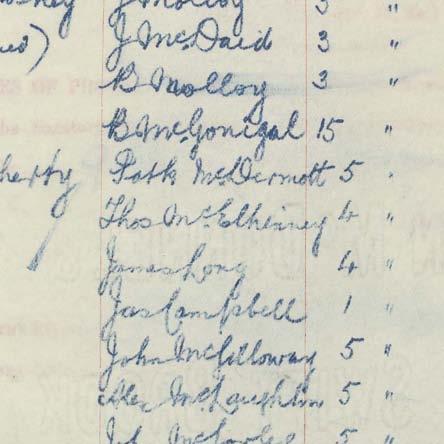 J Molloy 3 "
J McDaid 3 "
B Molloy 3 "
B McGonigal 15 "
Patk McDermott 5 "
Thos McElhinney 4 "
James Long 4 "
Jas Campbell 1 "
John McGilloway 5 "
Alex McLaughlin 5 "
5 "